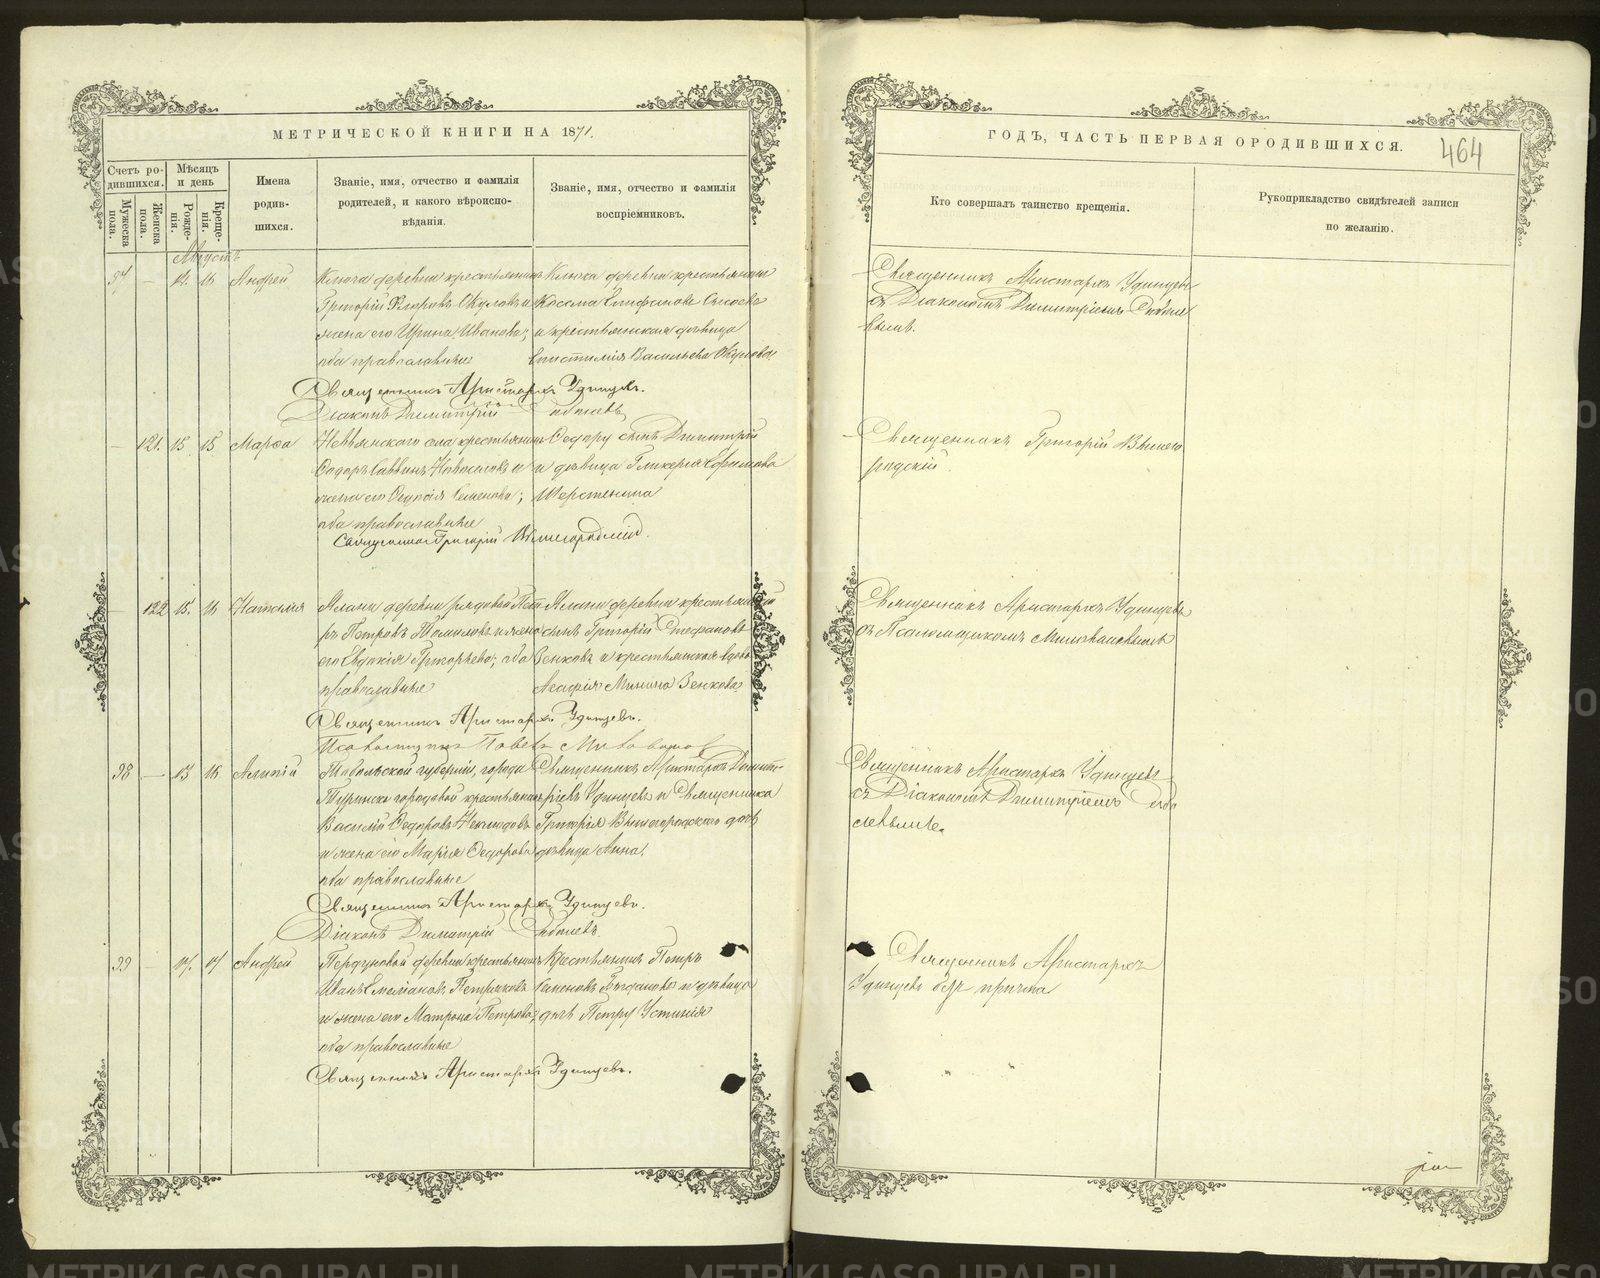 МЕТРИЧЕСКОЙ КНИГИ НА 1871.
Счетъ родившихся.
Мужеска пола.
Женска пола.
Мѣсяцъ и день
Рожденія.
Крещенія.
Имена родившихся.
Званіе, имя, отчество и фамилія
родителей, и какого вѣроисповѣданія.
Званіе, имя, отчество и фамилія
воспріемниковъ.
Августъ
97 — 14. 16 Андрей
Ключа деревни крестьянинъ
Григорій Окуловъ и
жена его Ирина Иванова;
оба православные
Ключа деревни крестьянинъ
Косма Епифановъ Сысоевъ
и крестьянская дѣвица
Васильева Окулова
Священникъ Аристархъ Удинцевъ.
Діаконъ Димитрій
— 121. 15 15 Марѳа
Невьянского села крестьянинъ
Ѳедоръ Саввинъ Новоселовъ и
жена его Семенова;
оба православные
Ѳедору сынъ Димитрій
и дѣвица Гликерія Ефимова
Шерстенина
Священникъ Григорій Вышегородскій.
— 122 15. 16 Наталія
деревни рядовой
Петровъ и жена
его Евдокія Григорьева; оба
православные
деревни крестьянскій
сынъ Григорій Стефановъ
Зенковъ и крестьянская вдова
Агафія Минина Зенкова
Священникъ Аристархъ Удинцевъ.
Псаломщикъ Павелъ
98 — 15 16 Алипій
Тобольской губерніи, города
Туринска городовой крестьянинъ
Василій Ѳедоровъ Неклюдовъ
и жена его Марія Ѳедорова
оба православные
Священникъ Аристархъ Димит-
ріевъ Удинцевъ и Священника
Григорія Вышегородскаго дочь
дѣвица Анна.
Священникъ Аристархъ Удинцевъ.
Діаконъ Димитрій
99 — 17. 17 Андрей
деревни крестьянинъ
Иванъ Емеліановъ
и жена его Матрона Петрова;
оба православные
Крестьянинъ Петръ
Богдановъ и дѣвица
дочь Петру Устинія
Священникъ Аристархъ Удинцевъ.
ГОДЪ, ЧАСТЬ ПЕРВАЯ О РОДИВШИХСЯ.
464
Кто совершалъ таинство крещенія.
Рукоприкладство свидѣтелей записи
по желанію.
Священникъ Аристархъ Удинцевъ
съ Діакономъ Димитріемъ
Священникъ Григорій Вышего
родскій.
Священникъ Аристархъ Удинцевъ
съ Псаломщикомъ
Священникъ Аристархъ Удинцевъ
съ Діакономъ Димитріемъ
Священникъ Аристархъ
Удинцевъ безъ причта
METRIKI.GASO-URAL.RU